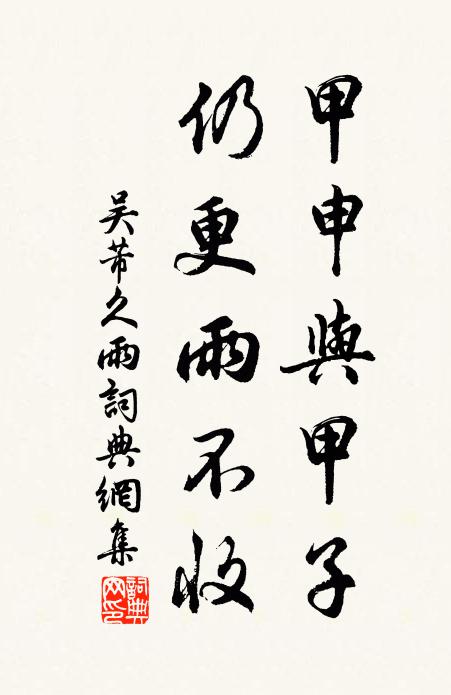 甲申與甲子
仍更雨不收
吴芾久雨詞典網集
詞典網印